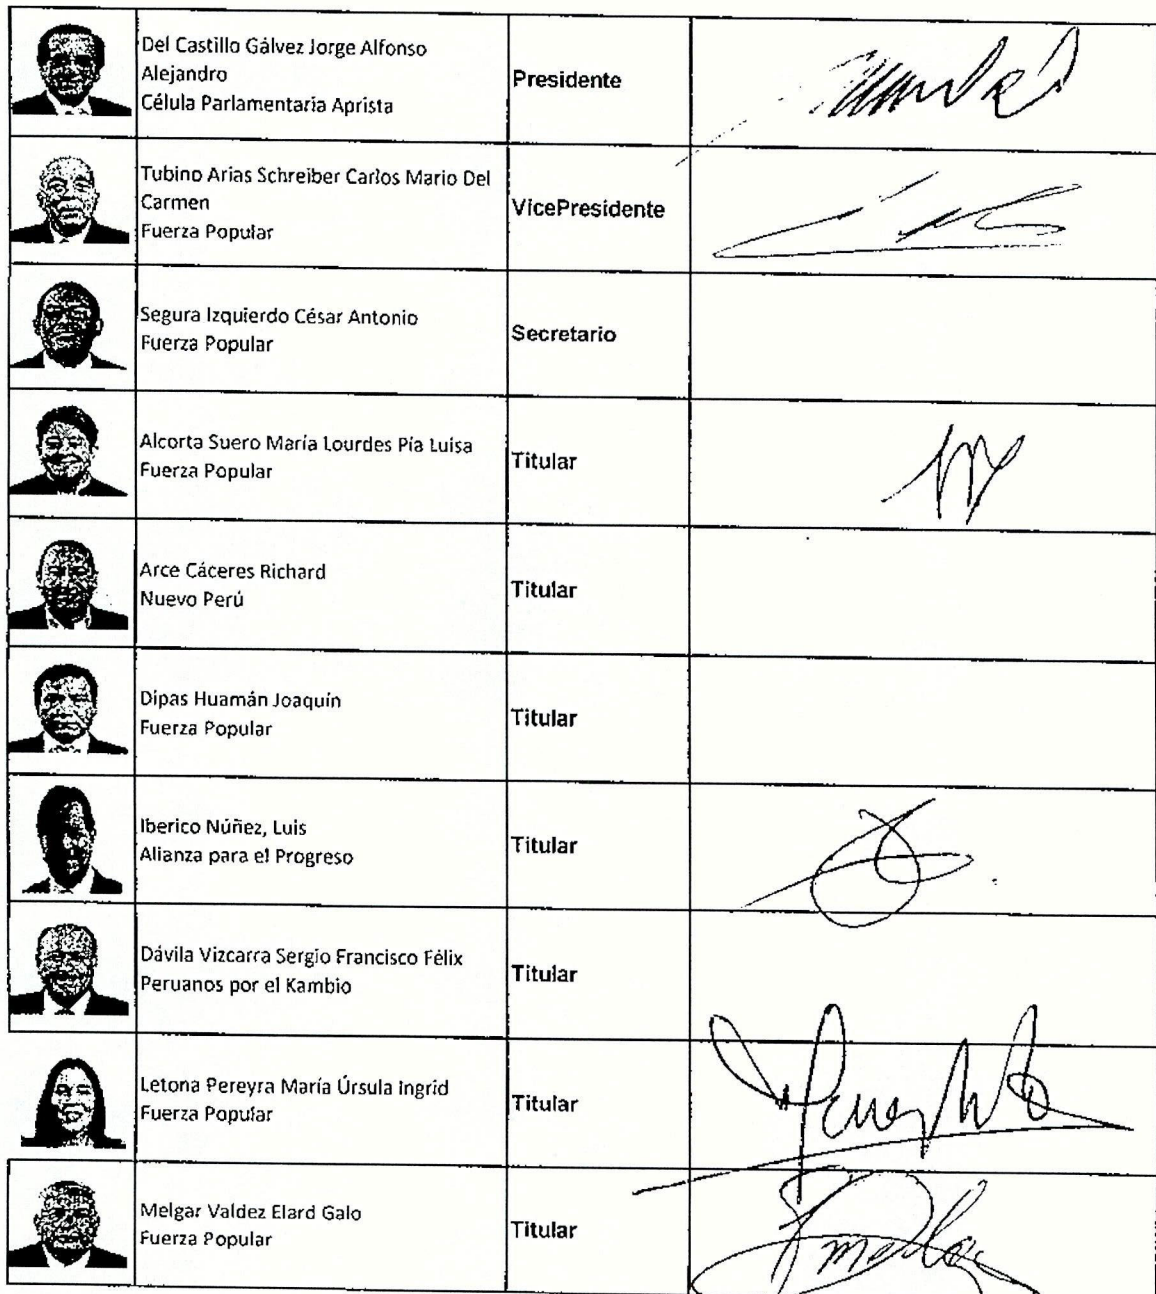 Del Castillo Gálvez Jorge Alfonso
Alejandro
Célula Parlamentaria Aprista
Presidente
Tubino Arias Schreiber Carlos Mario Del
Carmen
Fuerza Popular
VicePresidente
Segura Izquierdo César Antonio
Fuerza Popular
Secretario
Alcorta Suero María Lourdes Pía Luisa
Fuerza Popular
Titular
Arce Cáceres Richard
Nuevo Perú
Titular
Dipas Huamán Joaquín
Fuerza Popular
Titular
Iberico Núñez, Luis
Alianza para el Progreso
Titular
Dávila Vizcarra Sergio Francisco Félix
Peruanos por el Kambio
Titular
Letona Pereyra María Úrsula Ingrid
Fuerza Popular
Titular
Melgar Valdez Elard Galo
Fuerza Popular
Titular